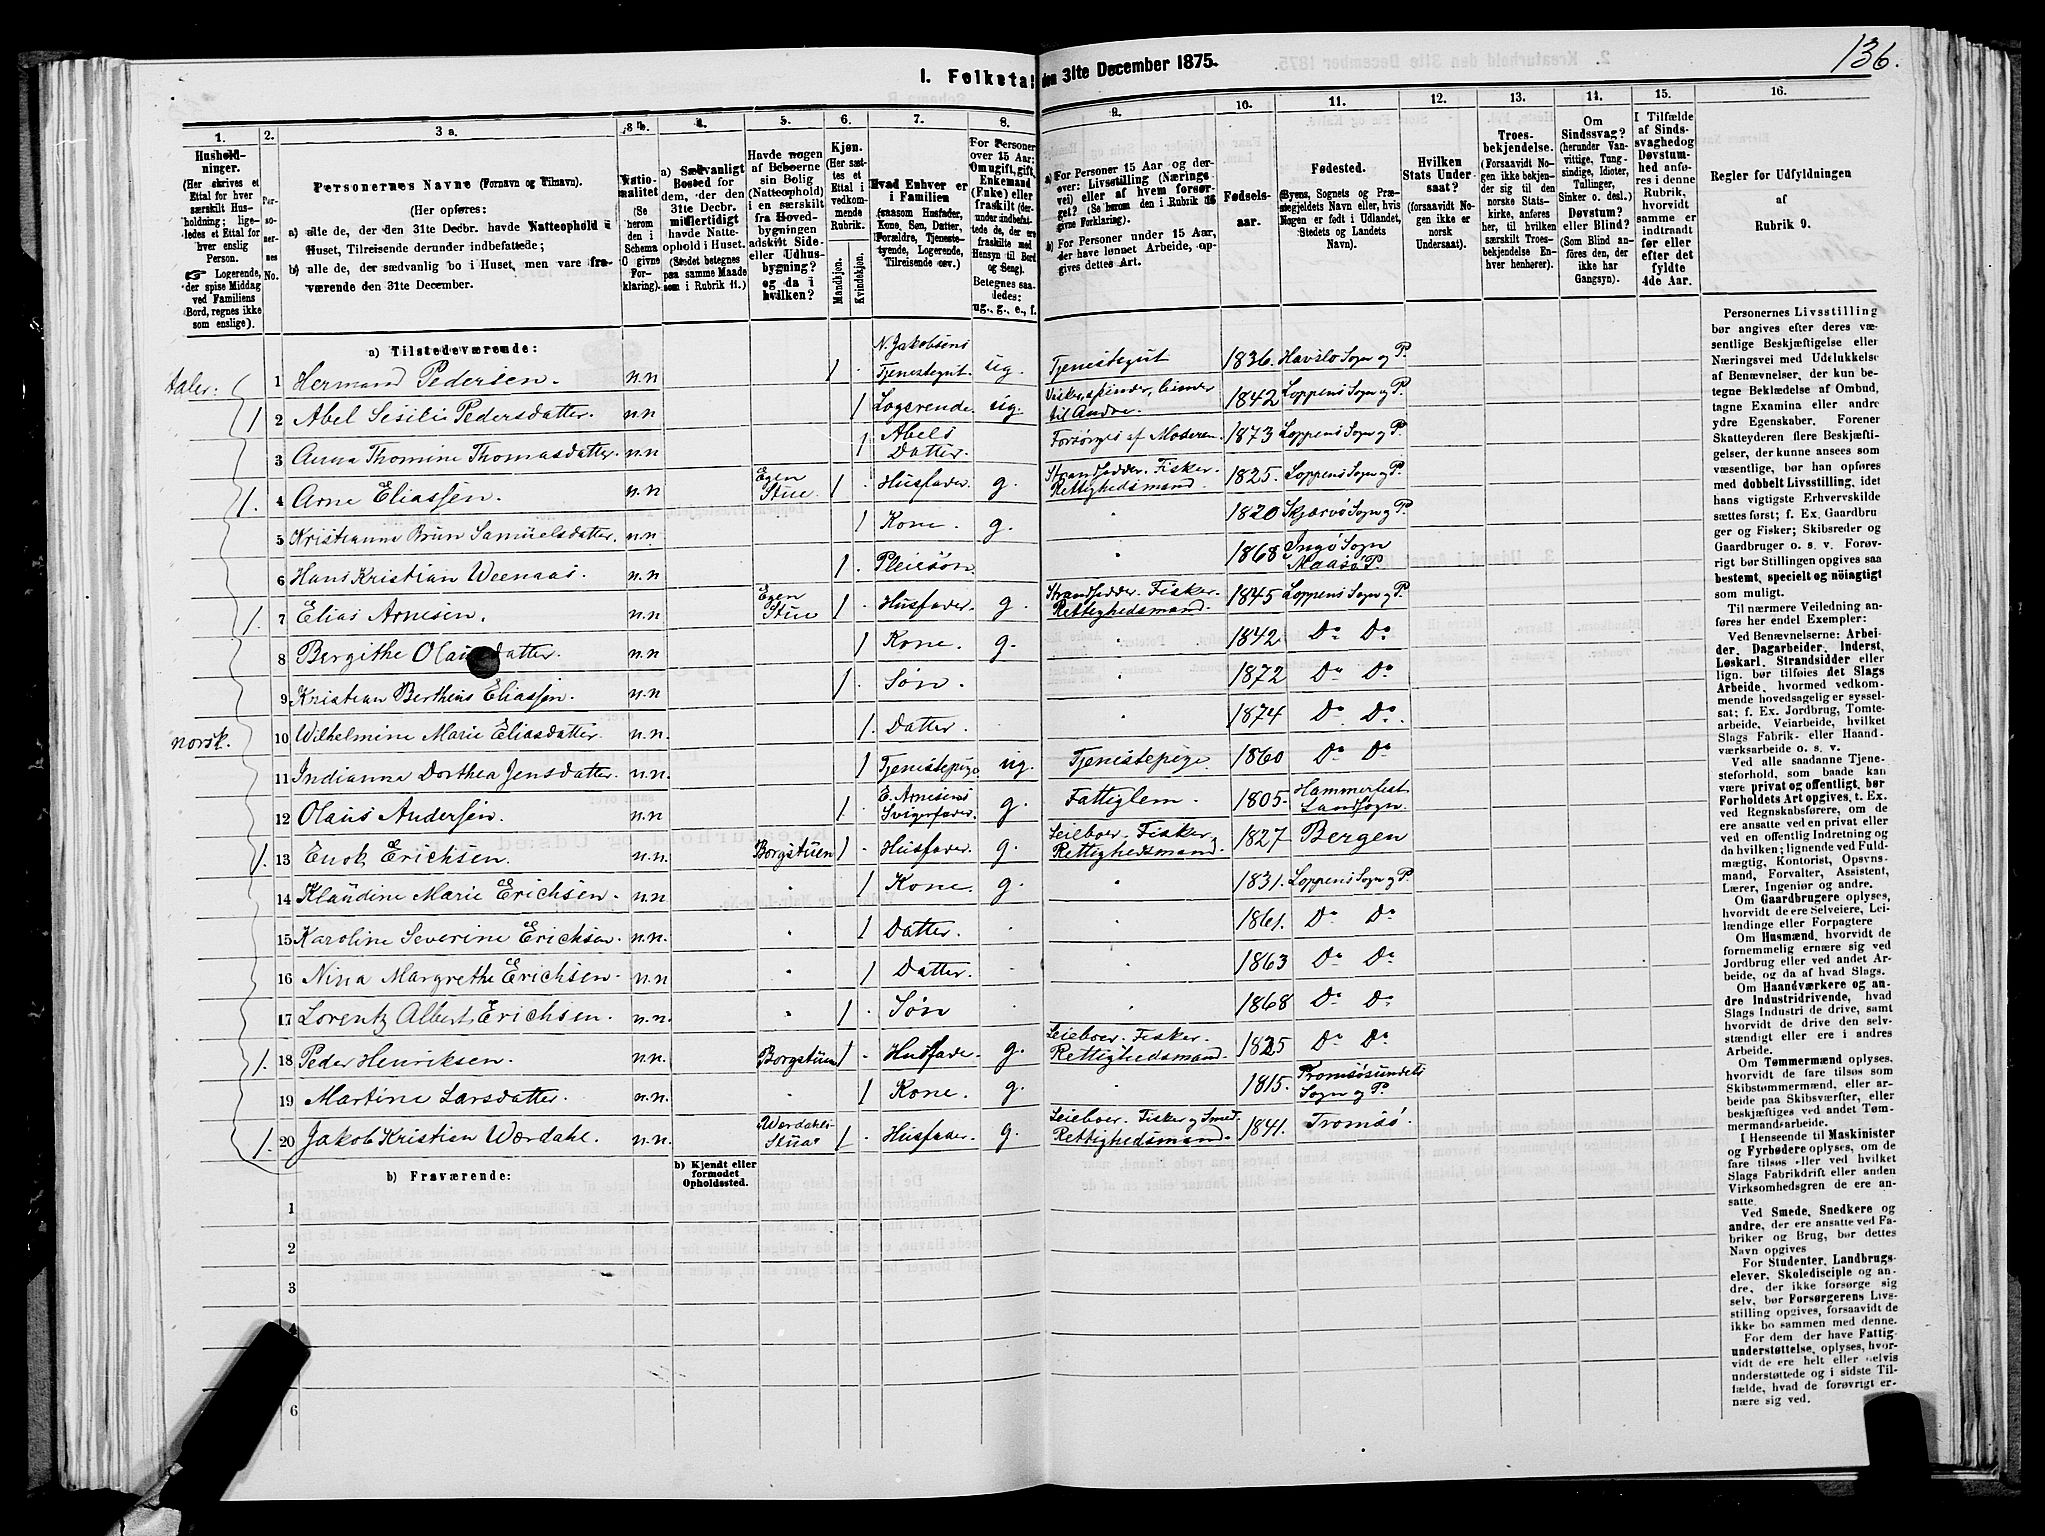 136.
1. Folketal den 31te December 1875.
1. 2. 3 a. 3 b. 4. 5. 6. 7. 8. 9. 10. 11. 12. 13. 14. 15. 16.
Husholdninger.
(Her skrives et Ettal for hver særskilt Husholdning; ligeledes et Ettal for hver enslig Person.
☞ Logerende, der spise Middag ved Familiens Bord, regnes ikke som enslige).
Personernes No.
Personernes Navne (Fornavn og Tilnavn).
(Her opføres:
a) alle de, der den 31te Decbr. havde Natteophold i Huset, Tilreisende derunder indbefattede;
b) alle de, der sædvanlig bo i Huset, men vare fraværende den 31te December.
Nationalitet (Se herom den i Schema O givne Forklaring).
a) Sædvanligt Bosted for dem, der den 31te Decbr. midlertidigt havde Natteophold i Huset. (Stedet betegnes paa samme Maade som i Rubrik 11.)
Havde nogen af Beboerne sin Bolig (Natteophold) i en særskilt fra Hovedbygningen adskilt Side- eller Udhusbygning? og da i hvilken?
Kjøn. (Her sættes et Ettal i vedkommende Rubrik.
Mandkjøn.
Kvindekjøn.
Hvad Enhver er i Familien
(saasom Husfader, Kone, Søn, Datter, Forældre, Tjenestetyende, Logerende, Tilreisende osv.)
For Personer over 15 Aar: Om ugift, gift, Enkemand (Enke) eller fraskilt (derunder indbefattede de, der ere fraskilte med Hensyn til Bord og Seng).
Betegnes saaledes: ug., g., e., f.
a) For Personer 15 Aar og derover: Livsstilling (Næringsvei) eller af hvem forsørget? (Se herom den i Rubrik 16 givne Forklaring).
b) For Personer under 15 Aar, der have lønnet Arbeide, opgives dettes Art.
Fødselsaar.
Fødested.
(Byens, Sognets og Præstegjeldets Navn eller, hvis Nogen er født i Udlandet, Stedets og Landets Navn).
Hvilken Stats Undersaat?
(forsaavidt Nogen ikke er norsk Undersaat).
Troesbekjendelse.
(Forsaavidt Nogen ikke bekjender sig til den norske Statskirke, anføres her, til hvilken særskilt Troesbekjendelse Enhver henhører).
Om Sindssvag? (herunder Vanvittige, Tungsindige, Idioter, Tullinger, Sinker o. desl.) Døvstum? eller Blind?
(Som Blind anføres den, der ikke har Gangsyn).
I Tilfælde af Sindssvaghed og Døvstumhed anføres i denne Rubrik, hvorvidt samme er indtraadt før eller efter det fyldte 4de Aar.
Regler for Udfyldningen
af
Rubrik 9.
a) Tilstedeværende:
1 Hermand Pedersen. n.n 1 N. Jakobsens Tjenestegut. ug. Tjenestegut 1836. Havslo Sogn og P.
1 2 Abel Sesilie Pedersdatter. n.n 1 Logerende. ug. til Andre. 1842 Loppens Sogn og P.
3 Anna Thomine Thomasdatter. n.n 1 Abels Datter. Forsørges af Moderen. 1873 Loppens Sogn og P.
1. 4 Arne Eliassen. n.n Egen Stue 1 Husfader g. Strandsidder. Fisker. Rettighedsmand. 1825. Loppens Sogn og P.
5 Kristianna Brun Samuelsdatter. n.n 1 Kone. g. " 1820 Skjærvø Sogn og P.
6 Hans Kristian Weenaas. n.n 1. Pleiesøn. " 1868 Ingø Sogn Maasø P.
1. 7 Elias Arnesen. n.n Egen Stue 1 Husfader. g. Strandsidder. Fisker. Rettighedsmand. 1845 Loppens Sogn og P.
8 Bergithe Olausdatter. n.n 1 Kone. g. " 1842 Do Do
9 Kristian Bertheus Eliassen. n.n 1. Søn. 1872 Do Do
norsk. 10 Wilhelmine Marie Eliasdatter. n.n. 1. Datter. " 1874 Do Do.
11 Indianna Dorthea Jensdatter. n.n. 1 Tjenestepige. ug. Tjenestepige. 1860 Do Do
12 Olaus Andersen. n.n 1. E. Arnesens Svigerfader. g. Fattiglem. 1805. Hammerfest Landsogn.
1. 13 Enok Erichsen. n.n. Borgstuen 1 Husfader. g. Leieboer. Fisker. Rettighedsmand. 1827 Bergen
14 Klaudine Marie Erichsen. n.n " 1 Kone. g. " 1831. Loppens Sogn og P.
15 Karoline Severine Erichsen. n.n. " 1 Datter. 1861. Do Do
16 Nina Margrethe Erichsen. n.n " 1 Datter. " 1863 Do Do
17 Lorentz Albert Erichsen. n.n. " 1 Søn " 1868 Do Do
1. 18 Peder Henriksen. n.n. Borgstuen 1 Husfader. g. Leieboer. Fisker. Rettighedsmand. 1825 Do Do
19 Martine Larsdatter. n.n. " 1 Kone. g. " 1815. Tromsøsundets Sogn og P.
1. 20 Jakob Kristian Wærdahl. n.n. Wærdahls Stuas 1 Husfader. g. Leieboer. Fisker og Smed. Rettighedsmand. 1841. Tromsø.
b) Fraværende:
b) Kjendt eller formodet Opholdssted.
1
2
3
4
6
Personernes Livsstilling bør angives efter deres væsentlige Beskjæftigelse eller Næringsvei med Udelukkelse af Benævnelser, der kun betegne Beklædelse af Ombud, tagne Examina eller andre ydre Egenskaber. Forener Skatteyderen flere Beskjæftigelser, der kunne ansees som væsentlige, bør han opføres med dobbelt Livsstilling, idet hans vigtigste Erhvervskilde sættes først; f. Ex. Gaardbruger og Fisker; Skibsreder og Gaardbruger o. s. v. Forøvrigt bør Stillingen opgives saa bestemt, specielt og nöiagtigt som muligt.
Til nærmere Veiledning anføres her endel Exempler:
Ved Benævnelserne: Arbeider, Dagarbeider, Inderst, Løskarl, Strandsidder eller lign. bør tilføies det Slags Arbeide, hvormed vedkommende hovedsagelig er sysselsat; f. Ex. Jordbrug, Tomtearbeide, Veiarbeide, hvilket Slags Fabrik- eller Haandværksarbeide o. s. v.
Ved alle saadanne Tjenesteforhold, som baade kan være privat og offentligt, bør Forholdets Art opgives, t. Ex. ved Regnskabsførere, om de ere ansatte ved en privat eller ved en offentlig Indretning og da hvilken; lignende ved Fuldmægtig, Kontorist, Opsynsmand, Forvalter, Assistent, Lærer, Ingeniør og andre.
Om Gaardbrugere oplyses, hvorvidt de ere Selveiere, Leilændinge eller Forpagtere
Om Husmænd, hvorvidt de fornemmelig ernære sig ved Jordbrug eller ved andet Arbeide, og da af hvad Slags.
Om Haandværkere og andre Industridrivende, hvad Slags Industri de drive, samt hvorvidt de drive den selvstændigt eller ere i andres Arbeide.
Om Tømmermænd oplyses, hvorvidt de fare tilsøs som Skibstømmermænd, eller arbeide paa Skibsværfter, eller beskjæftiges ved andet Tømmermandsarbeide.
I Henseende til Maskinister og Fyrbødere oplyses, om de fare tilsøs eller ved hvilket Slags Fabrikdrift eller anden Virksomhedsgren de ere ansatte
Ved Smede, Snedkere og andre, der ere ansatte ved Fabriker og Brug, bør dettes Navn opgives
For Studenter, Landbrugselever, Skoledisciple og andre, der ikke forsørge sig selv, bør Forsørgerens Livsstilling opgives, forsaavidt de ikke bo sammen med denne.
For dem der have Fattigunderstøttelse, oplyses, hvorvidt de ere helt eller delvis understøttede og i sidste Tilfælde, hvad de forøvrigt ernære sig ved.